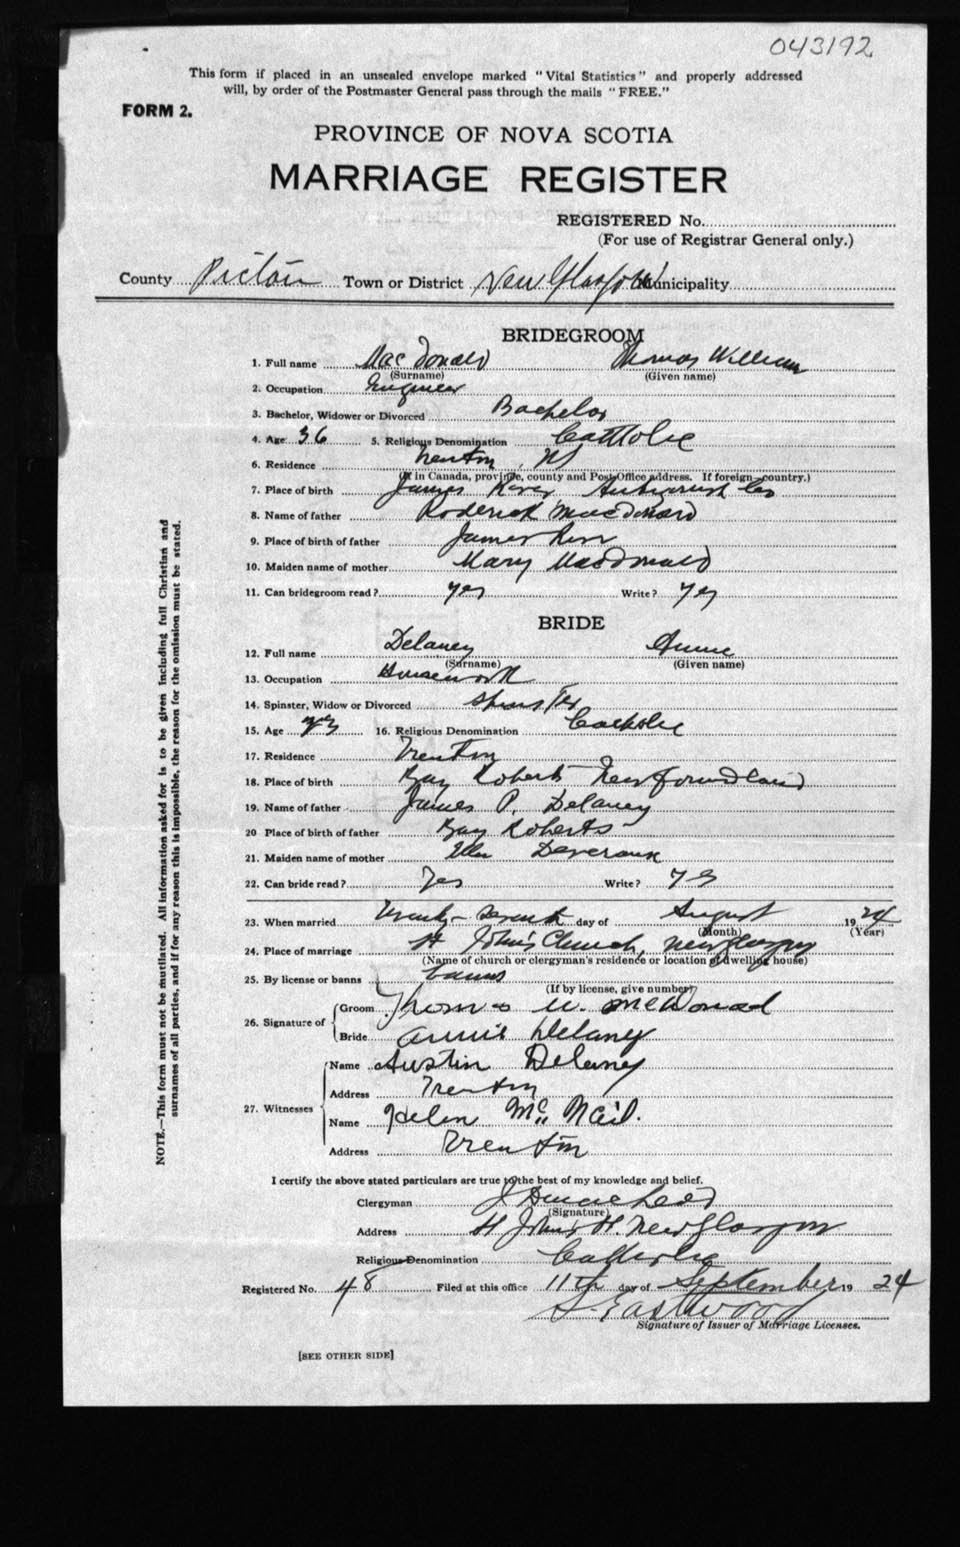 043192
This form if placed in an unsealed envelope marked "Vital Statistics" and properly addressed
will, by order of the Postmaster General pass through the mails "FREE."
FORM 2.
PROVINCE OF NOVA SCOTIA
MARRIAGE REGISTER
REGISTERED No.
(For use of Registrar General only.)
County Pictou Town or District New Glasgow Municipality
BRIDEGROOM
1. Full name MacDonald Thomas William
(Surname) (Given name)
2. Occupation Engineer
3. Bachelor, Widower or Divorced Bachelor
4. Age 36 5. Religious Denomination Catholic
6. Residence Trenton, NS
(If in Canada, province, county and Post Office address. If foreign—country.)
7. Place of birth James River Antigonish Co
8. Name of father Roderick MacDonald
9. Place of birth of father James River
10. Maiden name of mother Mary MacDonald
11. Can bridegroom read? yes Write? yes
BRIDE
12. Full name Delaney Annie
(Surname) (Given name)
13. Occupation Housework
14. Spinster, Widow or Divorced Spinster
15. Age 16. Religious Denomination Catholic
17. Residence Trenton
18. Place of birth Bay Roberts Newfoundland
19. Name of father James P. Delaney
20 Place of birth of father Bay Roberts
21. Maiden name of mother Devereaux
22. Can bride read? Yes Write? Yes
23. When married Twenty-Seventh day of August 1924
(Month) (Year)
24. Place of marriage St John's Church, New Glasgow
(Name of church or clergyman's residence or location of dwelling house)
25. By license or banns banns
(If by license, give number)
26. Signature of Groom Thomas W. McDonald
Bride Annie Delaney
27. Witnesses Name Austin Delaney
Address Trenton
Name Helen McNeil.
Address Trenton
I certify the above stated particulars are true to the best of my knowledge and belief.
Clergyman
(Signature)
Address St John's New Glasgow
Religious Denomination Catholic
Registered No. 48 Filed at this office 11th day of September 1924
S. Eastwood
Signature of Issuer of Marriage Licenses.
[SEE OTHER SIDE]
NOTE.—This form must not be mutilated. All information asked for is to be given including full Christian and
surnames of all parties, and if for any reason this is impossible, the reason for the omission must be stated.